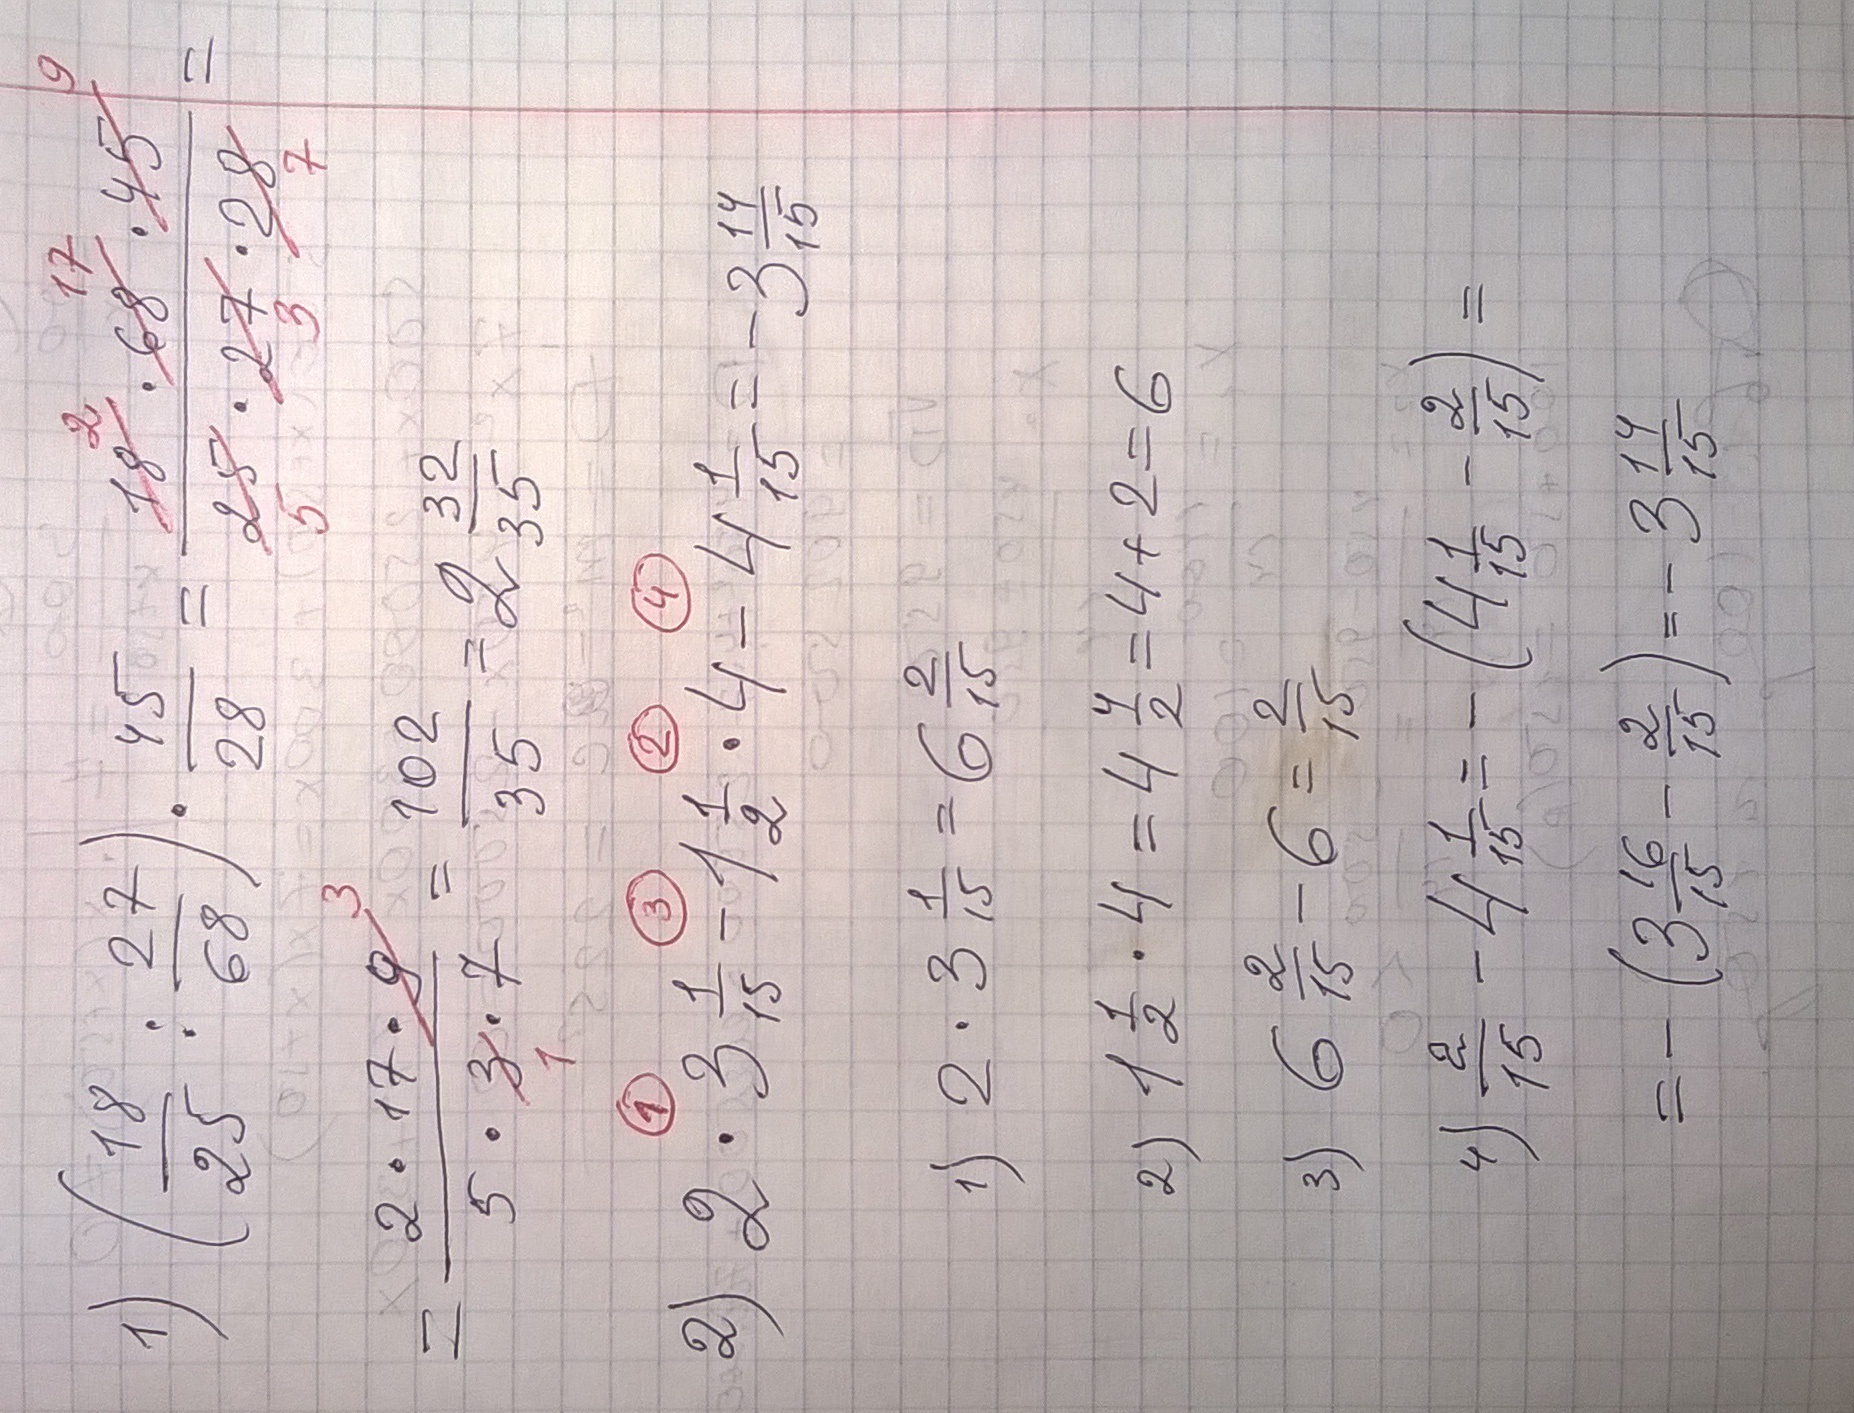 1) (18/25 : 27/68) · 45/28 = (18 · 68 · 45)/(25 · 27 · 28) =
2 17 9
5 3 7
= (2 · 17 · 9)/(5 · 3 · 7) = 102/35 = 2 32/35
3
1
① ③ ② ④
2) 2 · 3 1/15 - 1 1/2 · 4 - 4 1/15 = - 3 14/15
1) 2 · 3 1/15 = 6 2/15
2) 1 1/2 · 4 = 4 4/2 = 4 + 2 = 6
3) 6 2/15 - 6 = 2/15
4) 2/15 - 4 1/15 = - (4 1/15 - 2/15) =
= - (3 16/15 - 2/15) = - 3 14/15